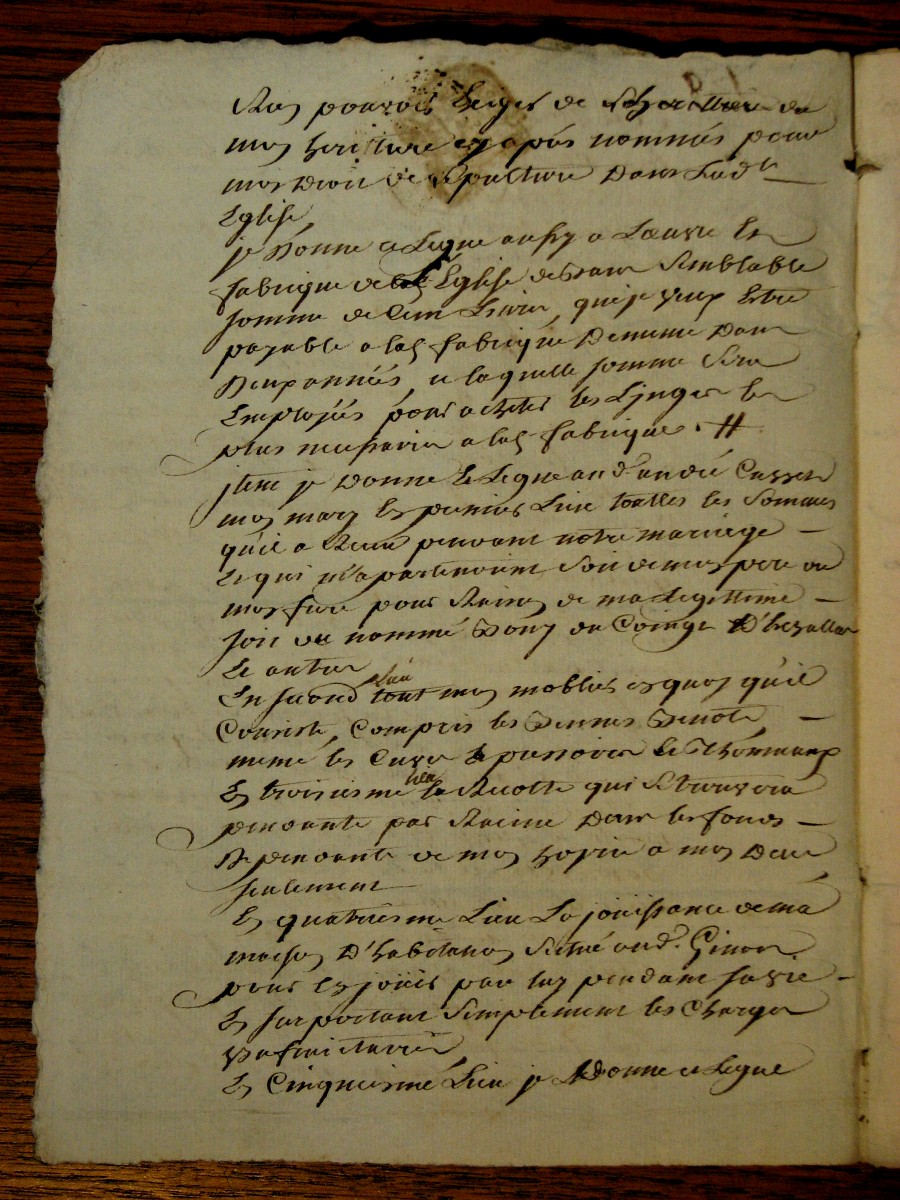 Rien pouvoir Exiger de
mon heritiere cy apres nommés pour
mon Droit de Sepulture Dans Lad.e
Eglise
je Donne et Legue aussy a L'œuvre Et
fabrique de lad Eglise de semblable
somme de Cent Livres, que je veux Estre
payable a lad fabrique De meme Dans
Deux années, et laquelle somme Sera
Employés pour acheter les Linges les
plus necessaires a lad fabrique . #
jtem je Donne et Legue aud.t andré
mon mary En premier Lieu touttes les Sommes
qu'il a Receu pendant notre mariage
Et qui m'apartenoient Soit de mon pere ou
mon frere pour Raison de ma Legittime
soit du nommé du Coinge
Et autres
En second Lieu tout mon moblier en quoy qu'il
Consiste, Compris les Denrées
meme les Cuves pressoires et thonneaux
En troisieme lieu la Recolte qui se trouvera
pendante par Racine Dans les fonds
Dependants de mon hoirie a mon Deces
seulement
En quatrieme Lieu La joüissance de ma
maison D'habitation Situé aud.
pour En joüir par luy pendant sa vie
En suportant Simplement les Charges
usufruitaires
En Cinquieme Lieu je Donne et Legue